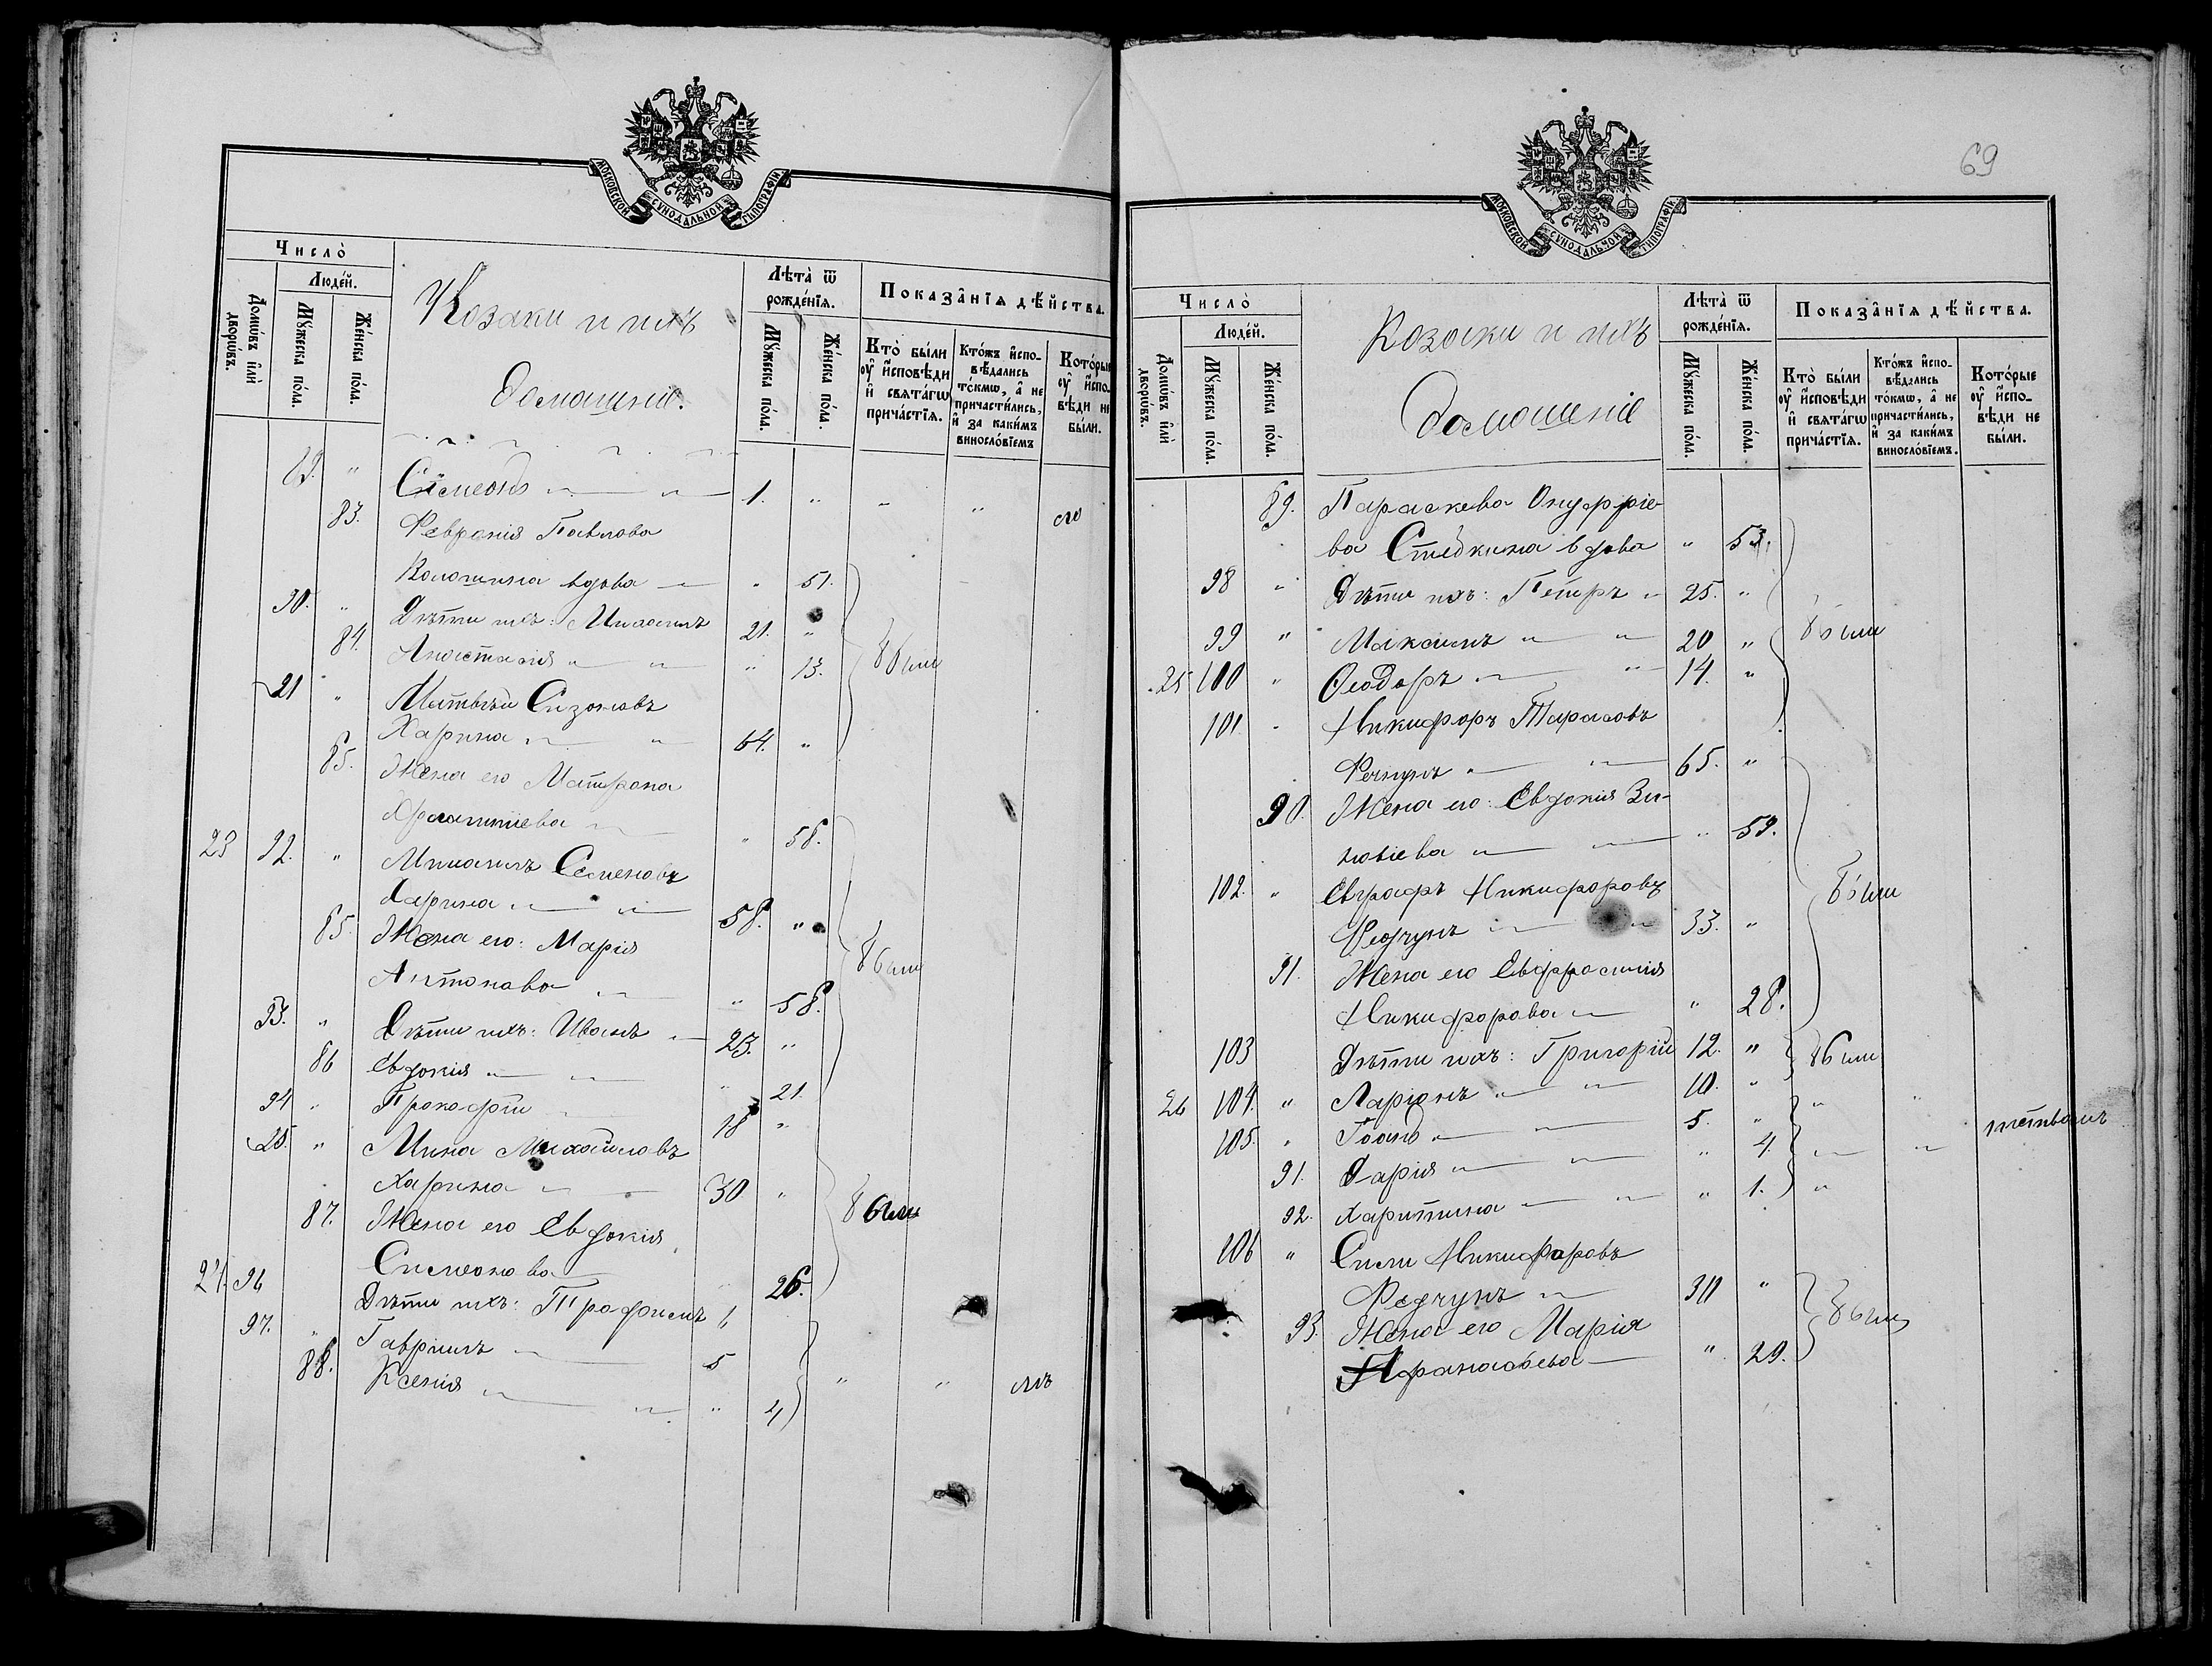 МОСКОВСКОЙ СУНОДАЛЬНОЙ ТИПОГРАФІИ
Число̀
Домѡ́въ и҆лѝ дворѡ́въ.
Люде́й.
Мꙋ́жеска по́ла.
Же́нска по́ла.
Козаки и ихъ
домашніе.
Лѣта̀ ѿ рожде́нїѧ.
Мꙋ́жеска по́ла.
Же́нска по́ла.
Показа̑нїѧ дѣ́йства.
Кто̀ бы́ли ᲂу҆ и҆сповѣ́ди и҆ свѧта́гѡ прича́стїѧ.
Кто́жъ и҆спо-вѣ́дались то́кмѡ, а҆ не причасти́лись, и҆ за каки́мъ винosло́вїемъ
Кото́рые ᲂу҆ и҆спо-вѣ́ди не бы́ли.
89. " Симеонъ " " 1. " " "
83. Февронія Павлова
вдова " " 51.
90. " Дѣти ихъ: Михаилъ 21. "
84. Анастасія " " " 13. были
21 " Матвѣй Сизоновъ
Харина " " 64. "
85. Жена его Матрона
" 58.
23 92. " Михаилъ Семеновъ
Харина " " 58. "
85. Жена его: Марія
Антонова " " 58. были
93. " Дѣти ихъ: Иванъ " 23. "
86 Евдокія " " " 21.
94 " Прокофій " 18 "
25. " Мина Михайловъ
Харина " 30 "
87. Жена его Евдокія были
Симеонова " 26.
24. 96 Дѣти ихъ: Трофимъ
97. " Гавріилъ " 5
88. Ксенія " " " 4 " "
69
МОСКОВСКОЙ СУНОДАЛЬНОЙ ТИПОГРАФІИ
Число̀
Домѡ́въ и҆лѝ дворѡ́въ.
Люде́й.
Мꙋ́жеска по́ла.
Же́нска по́ла.
Козаки и ихъ
домашніе
Лѣта̀ ѿ рожде́нїѧ.
Мꙋ́жеска по́ла.
Же́нска по́ла.
Показа̑нїѧ дѣ́йства.
Кто̀ бы́ли ᲂу҆ и҆сповѣ́ди и҆ свѧта́гѡ прича́стїѧ.
Кто́жъ и҆спо-вѣ́дались то́кмѡ, а҆ не причасти́лись, и҆ за каки́мъ винosло́вїемъ.
Кото́рые ᲂу҆ и҆спо-вѣ́ди не бы́ли.
89. Параскева Онуфріе-
ва вдова " 53.
98 " Дѣти ихъ: Петръ " 25. "
99 " Максимъ " " 20 " были
25 100 " Ѳеодоръ " " 14. "
101. " Никифоръ Тарасовъ
" " 65. "
90. Жена его: Евдокія Зи-
новіева " " " 59.
102. " Евграфъ Никифоровъ были
Федчунъ " " 33. "
91. Жена его Евфросинія
Никифорова " " 28.
103 Дѣти ихъ: Григорій 12. " были
26 104. " Ларіонъ " " 10. "
105. " Іоанъ " " 5. " " "
91. Дарія " " " 4. " "
92. Харитина " " " 1. "
106 " Сила Никифоровъ
Федчунъ " 30 "
93. Жена его Марія были
Афанасьева " 29.